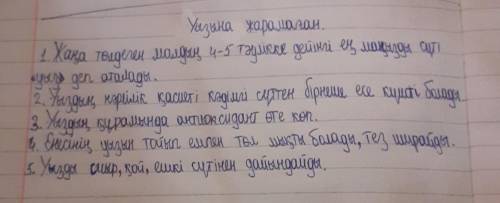 Уызына жарамаған.
1. Жаңа төлдеген малдың 4-5 тәулікке дейінгі ең маңызды сүті
уыз деп аталады.
2. Уыздың нәрлік қасиеті кәдімгі сүттен бірнеше есе күшті болады.
3. Уыздың құрамында антиоксидант өте көп.
4. Енесінің уызын тойып емген төл мықты болады, тез ширайды.
5. Уызды сиыр, қой, ешкі сүтінен дайындайды.